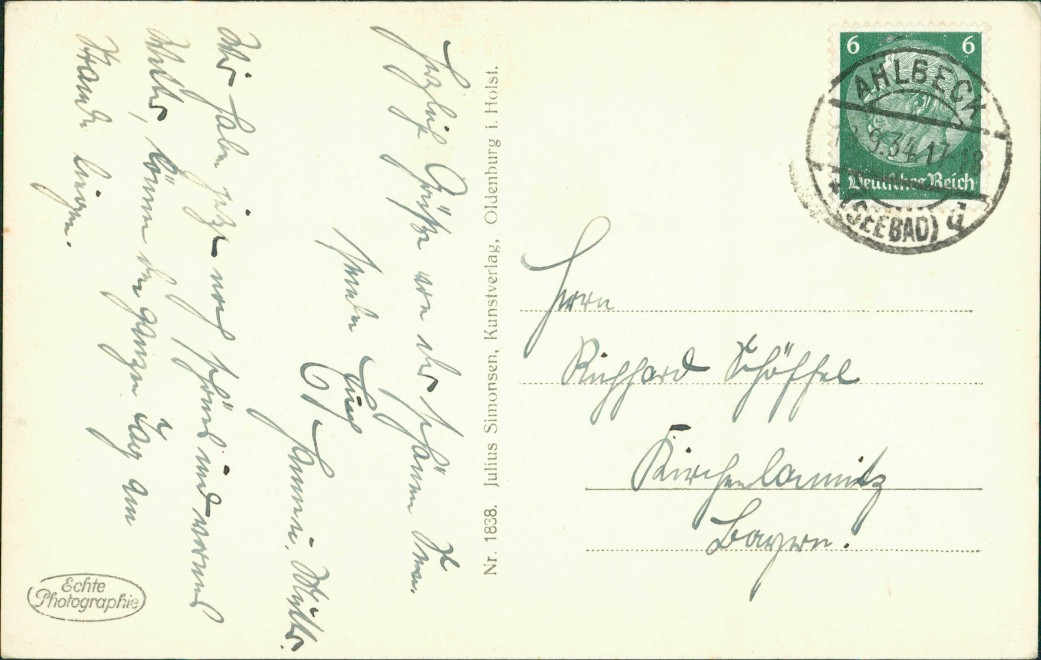 Herzliche Grüße von der schönen See
sendet Euch
G. Hanni. Mutter.
Wir haben jetzt noch schönes und warmes
Wetter, können den ganzen Tag am
Strande liegen.
Nr. 1838. Julius Simonsen, Kunstverlag, Oldenburg i. Holst.
6 6
Deutsches Reich
AHLBECK
9.34.17-18
(SEEBAD) d
Herrn
Richhard Schöffel
Kirchenlamitz
Bayern.
Echte
Photographie